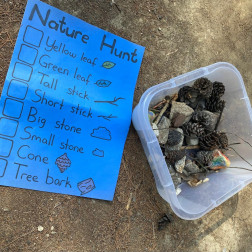 Nature Hunt
Yellow leaf
Green leaf
Tall stick
Short stick
Big stone
Small stone
Cone
Tree bark